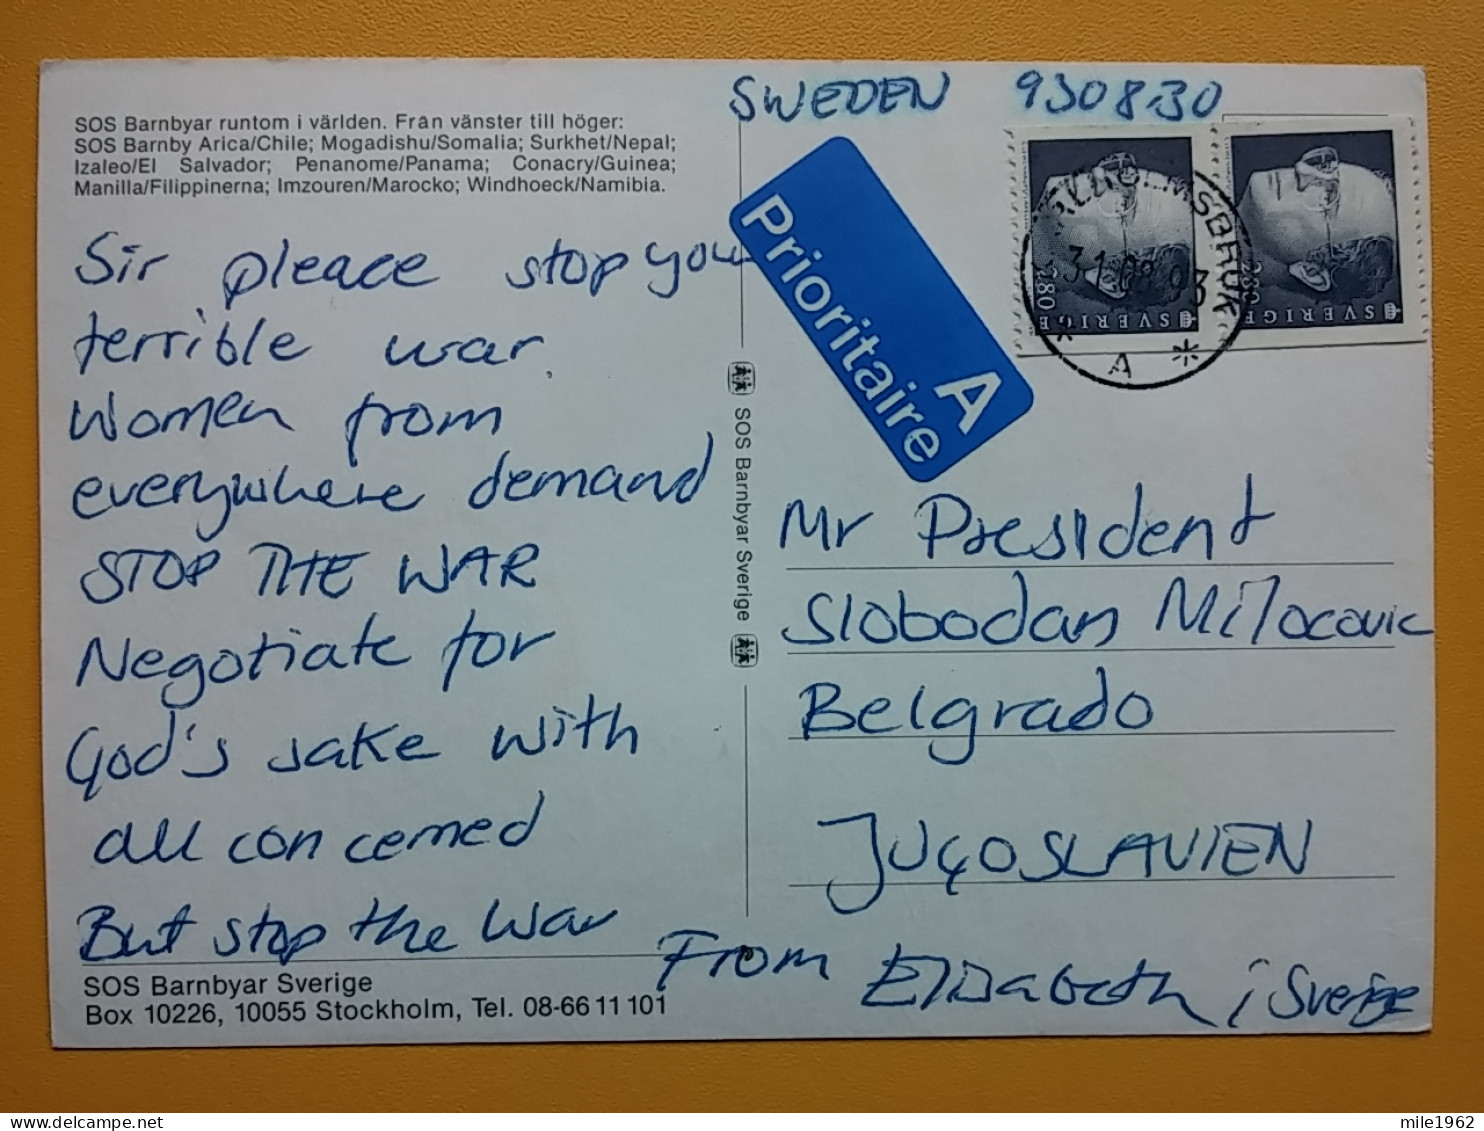 SOS Barnbyar runtom i världen. Från vänster till höger:
SOS Barnby Arica/Chile; Mogadishu/Somalia; Surkhet/Nepal;
Izaleo/El Salvador; Penanome/Panama; Conacry/Guinea;
Manilla/Filippinerna; Imzouren/Marocko; Windhoeck/Namibia.
Sir pleace stop you
terrible war.
Women from
everywhere demand
STOP THE WAR
Negotiate for
God's sake with
all concerned
But stop the war
SOS Barnbyar Sverige
Box 10226, 10055 Stockholm, Tel. 08-66 11 101
SOS Barnbyar Sverige
SWEDEN 930830
Prioritaire
A
280 SVERIGE
280 SVERIGE
31.08.93
A *
Mr President
Slobodan Milocovic
Belgrado
JUGOSLAVIEN
From Elisabeth i Sverige
mile1962